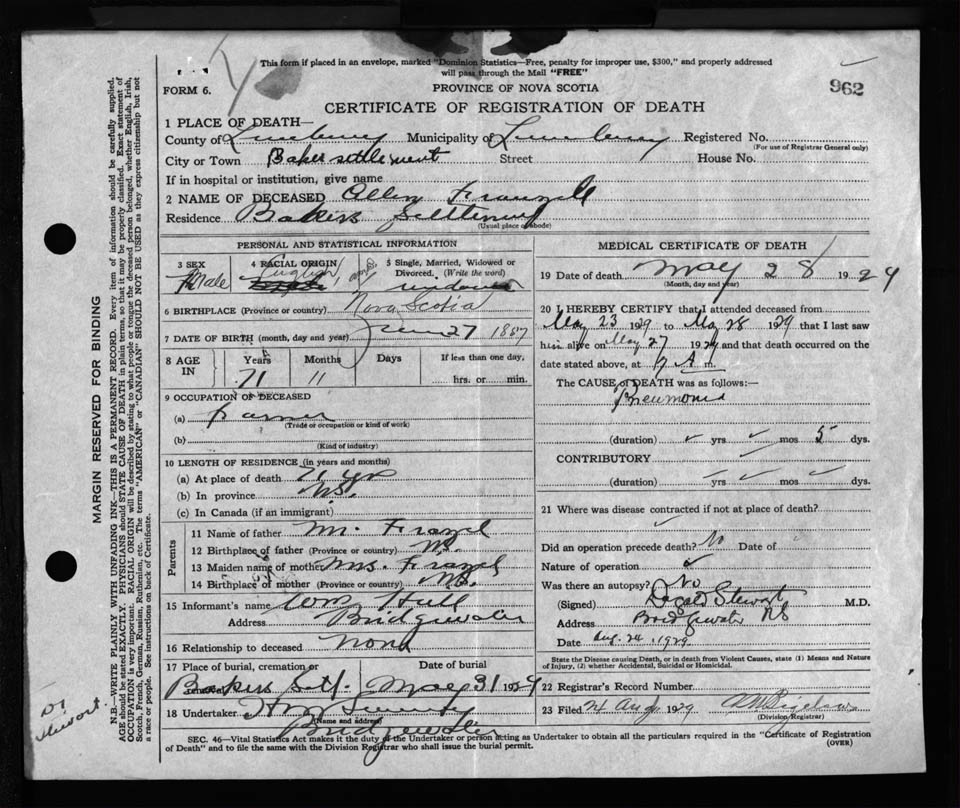 This form if placed in an envelope, marked "Dominion Statistics—Free, penalty for improper use, $300," and properly addressed
will pass through the Mail "FREE"
FORM 6.
PROVINCE OF NOVA SCOTIA
962
CERTIFICATE OF REGISTRATION OF DEATH
1 PLACE OF DEATH—
County of Lunenburg Municipality of Lunenburg Registered No.
(For use of Registrar General only)
City or Town Baker settlement Street House No.
If in hospital or institution, give name
2 NAME OF DECEASED Allen
Residence Bakers Settlement
(Usual place of abode)
PERSONAL AND STATISTICAL INFORMATION
3 SEX Male
4 RACIAL ORIGIN English
5 Single, Married, Widowed or Divorced. (Write the word) widower
6 BIRTHPLACE (Province or country) Nova Scotia
7 DATE OF BIRTH (month, day and year) 27 1857
8 AGE IN Years 71 Months 11 Days If less than one day, hrs. or min.
9 OCCUPATION OF DECEASED
(a) Farmer
(Trade or occupation or kind of work)
(b)
(Kind of industry)
10 LENGTH OF RESIDENCE (in years and months)
(a) At place of death 71 yrs
(b) In province N.S.
(c) In Canada (if an immigrant)
Parents
11 Name of father Mr.
12 Birthplace of father (Province or country) N.S.
13 Maiden name of mother Mrs.
14 Birthplace of mother (Province or country) N.S.
15 Informant's name Wm Hull
Address Bridgewater
16 Relationship to deceased None
17 Place of burial, cremation or removal Bakers Setl.
Date of burial May 31 1929
18 Undertaker
(Name and address)
Bridgewater
MEDICAL CERTIFICATE OF DEATH
19 Date of death May 28 1929
(Month, day and year)
20 I HEREBY CERTIFY that I attended deceased from
May 23 1929 to May 28 1929 that I last saw
him alive on May 27 1929 and that death occurred on the
date stated above, at A m.
The CAUSE of DEATH was as follows:—
Pneumonia
(duration) yrs mos 5 dys.
CONTRIBUTORY
(duration) yrs mos dys.
21 Where was disease contracted if not at place of death?
Did an operation precede death? No Date of
Nature of operation
Was there an autopsy? No
(Signed) Stewart M.D.
Address Bridgewater NS
Date Aug. 24, 1929
State the Disease causing Death, or in death from Violent Causes, state (1) Means and Nature
of Injury, (2) whether Accidental, Suicidal or Homicidal.
22 Registrar's Record Number
23 Filed 24 Aug 1929
(Division Registrar)
SEC. 46—Vital Statistics Act makes it the duty of the Undertaker or person acting as Undertaker to obtain all the particulars required in the "Certificate of Registration
of Death" and to file the same with the Division Registrar who shall issue the burial permit. (OVER)
MARGIN RESERVED FOR BINDING
N.B.—WRITE PLAINLY WITH UNFADING INK—THIS IS A PERMANENT RECORD. Every item of information should be carefully supplied.
AGE should be stated EXACTLY. PHYSICIANS should STATE CAUSE OF DEATH in plain terms, so that it may be properly classified. Exact statement of
OCCUPATION is very important. RACIAL ORIGIN will be described by stating to what people or tongue the deceased person belonged, whether English, Irish,
Scotch, French, German, Russian, Ruthenian, etc. The terms "AMERICAN" or "CANADIAN" SHOULD NOT BE USED as they express citizenship but not
a race or people. See instructions on back of Certificate.
Dr Stewart.